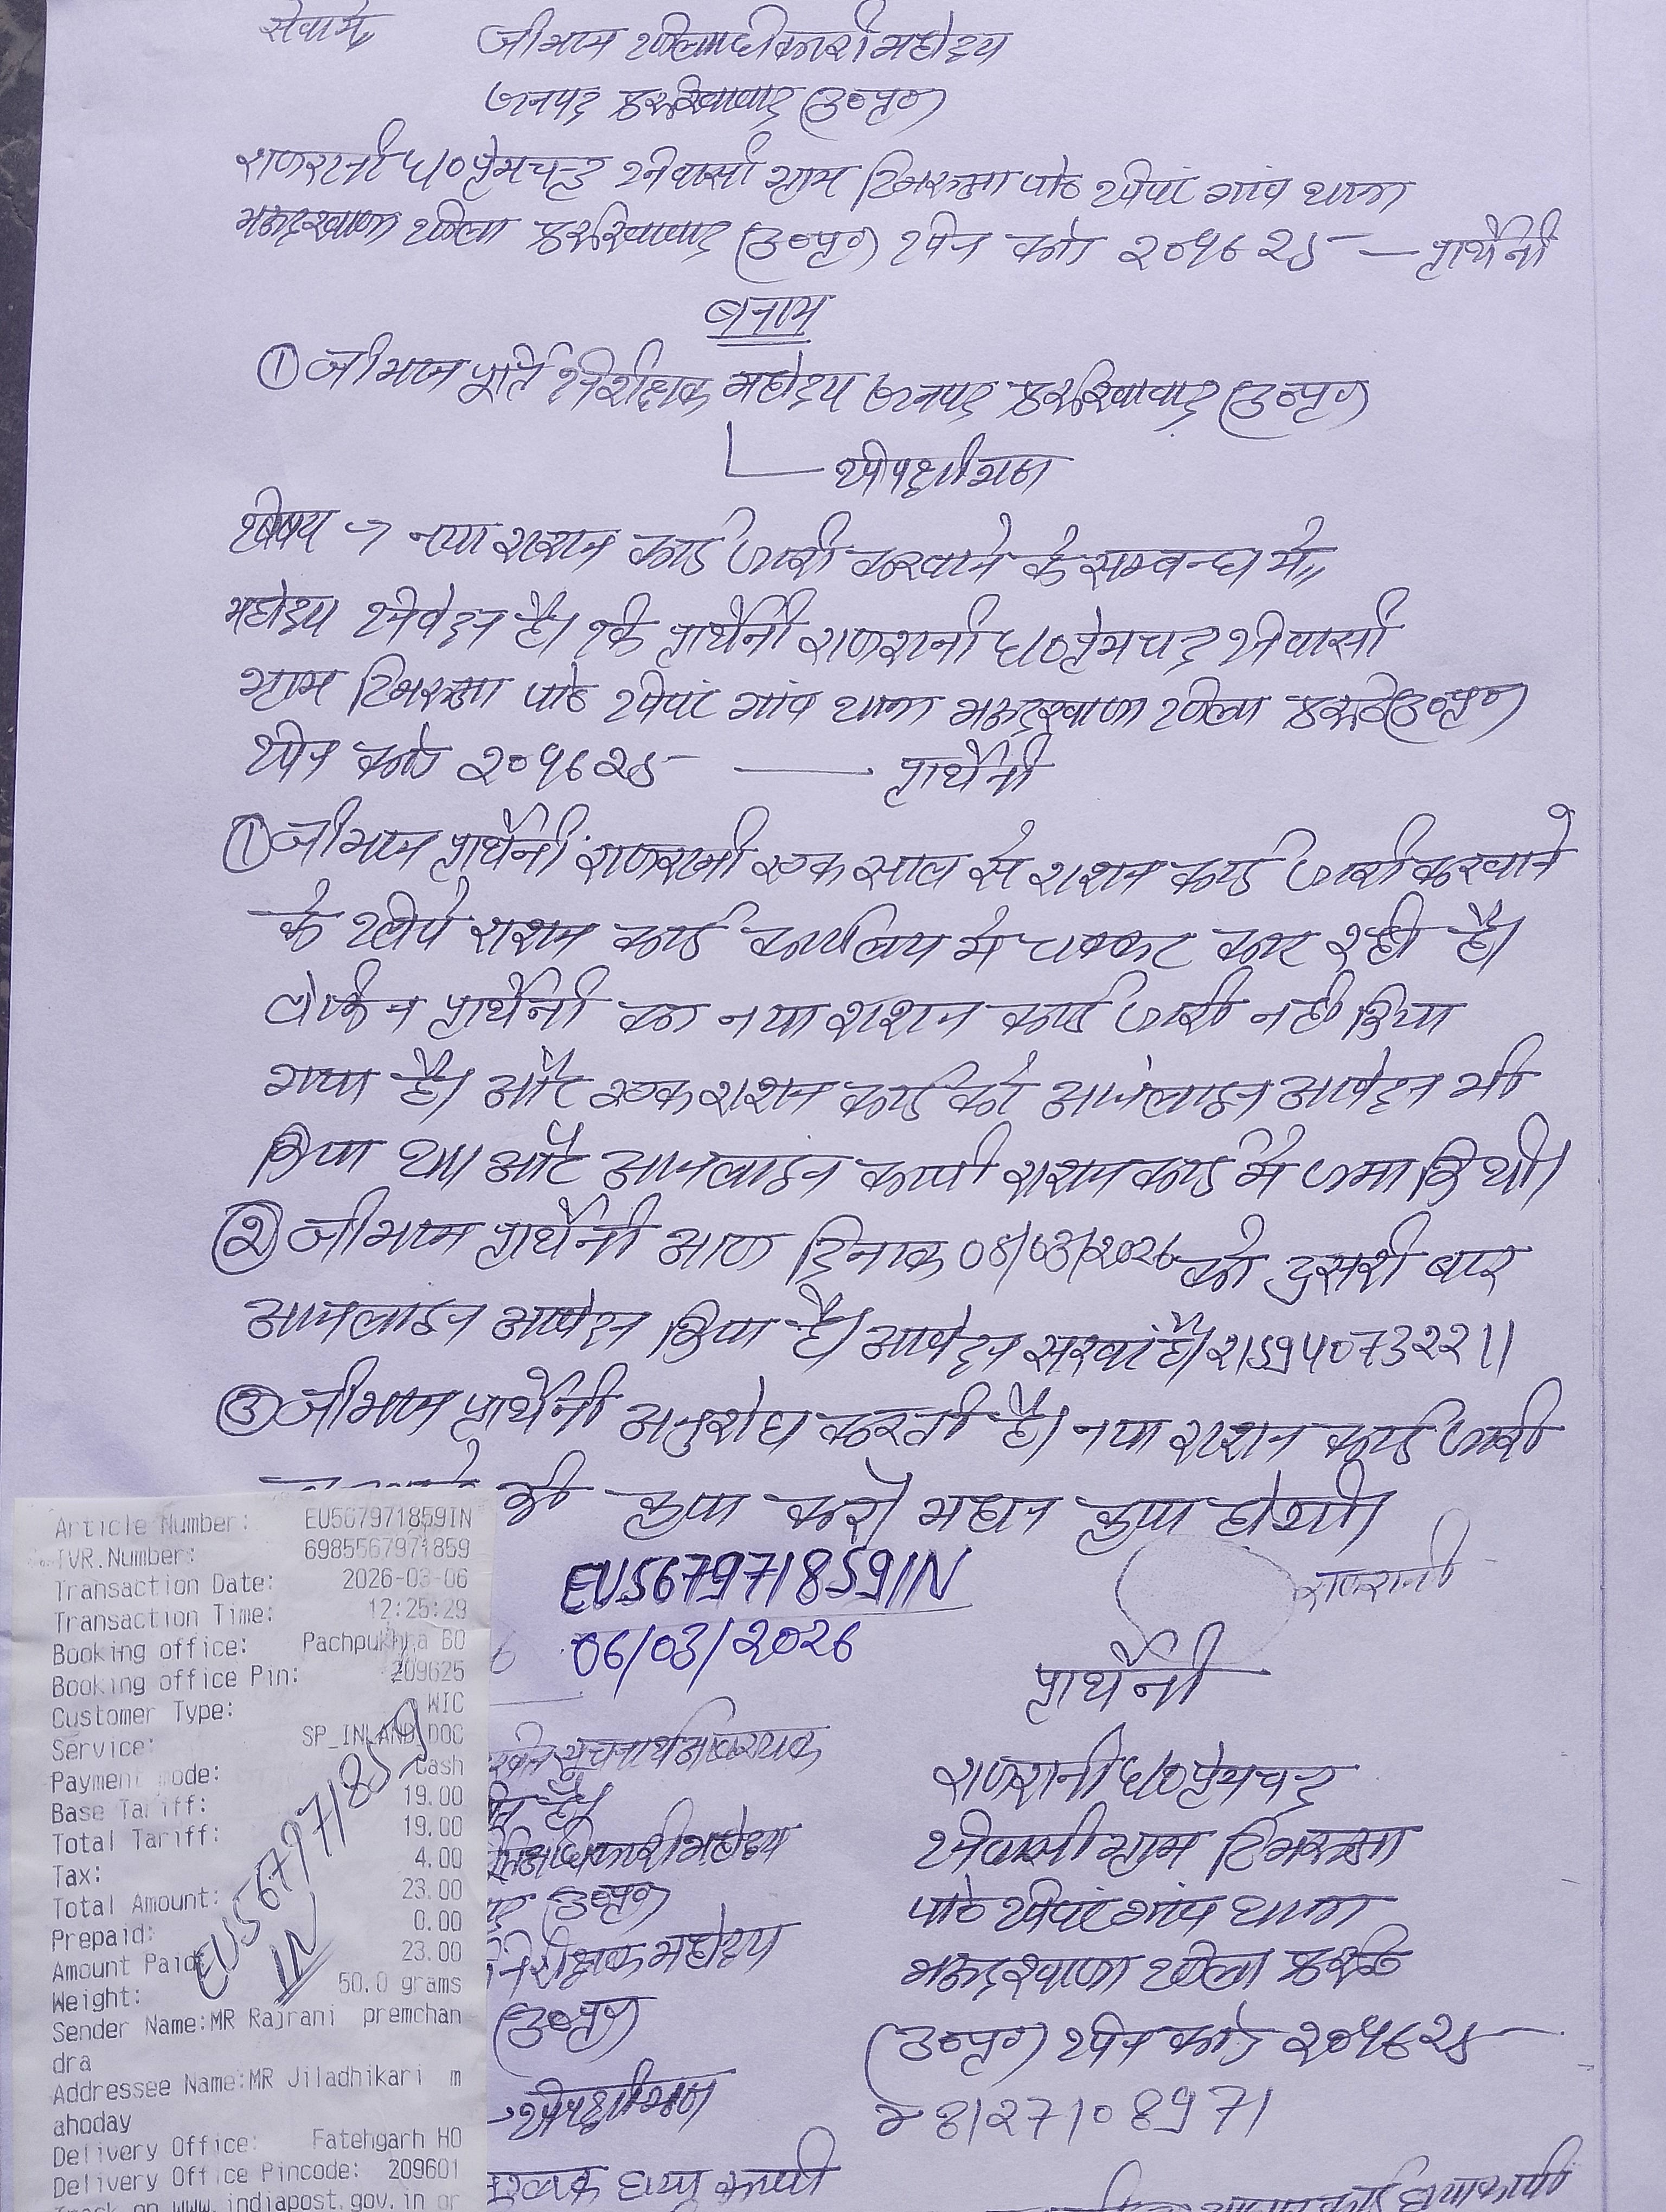 सेवामे,
श्रीमान जिलाधिकारी महोदय
जनपद फर्रुखाबाद (उ०प्र०)
राजरानी w/o प्रेमचन्द्र निवासी ग्राम पो० गांव थाना
जिला फर्रुखाबाद (उ०प्र०) पिन कोड २०९६२५ — प्रार्थिनी
बनाम
① श्रीमान पूर्ति निरीक्षक महोदय जनपद फर्रुखाबाद (उ०प्र०)
विपक्षीगण
विषय → नया राशन कार्ड जारी करवाने के सम्बन्ध मे॥
महोदय निवेदन है। कि प्रार्थिनी राजरानी w/o प्रेमचन्द्र निवासी
ग्राम पो० गांव थाना जिला फर्रु० (उ०प्र०)
पिन कोड २०९६२५ — प्रार्थिनी
① श्रीमान प्रार्थिनी राजरानी एक साल से राशन कार्ड जारी करवाने
के लिये राशन कार्ड कार्यालय मे चक्कर काट रही है।
लेकिन प्रार्थिनी का नया राशन कार्ड जारी नही किया
गया है। और एक राशन कार्ड को आनलाइन आवेदन भी
किया था। और आनलाइन कापी राशन कार्ड मे जमा कि थी।
② श्रीमान प्रार्थिनी आज दिनाक 05/03/2026 को दुसरी बार
आनलाइन आवेदन किया है। आवेदन सख्यां है।
③ श्रीमान प्रार्थिनी अनुरोध करती है। नया राशन कार्ड जारी
की कृपा करे। महान कृपा होगी।
EU567971859IN
राजरानी
06/03/2026
प्रार्थिनी
सूचनार्थ आवश्यक
राजरानी w/o प्रेमचन्द्र
है।
निवासी ग्राम
महोदय
पो० गांव थाना
(उ०प्र०)
जिला फर्रु०
निरीक्षक महोदय
(उ०प्र०) पिन कोड २०९६२५
(उ०प्र०)
8127108971
विपक्षीगण
Article Number: EU567971859IN
IVR.Number: 6985567971859
Transaction Date: 2026-03-06
Transaction Time: 12:25:29
Booking office: Pachpukhra BO
Booking office Pin: 209625
Customer Type: WIC
Service: SP_INLAND_DOC
Payment mode: Cash
Base Tariff: 19.00
Total Tariff: 19.00
Tax: 4.00
Total Amount: 23.00
Prepaid: 0.00
Amount Paid: 23.00
Weight: 50.0 grams
Sender Name:MR Rajrani premchan
dra
Addressee Name:MR Jiladhikari m
ahoday
Delivery Office: Fatehgarh HO
Delivery Office Pincode: 209601
Track on www.indiapost.gov.in or
EU567971859
IN